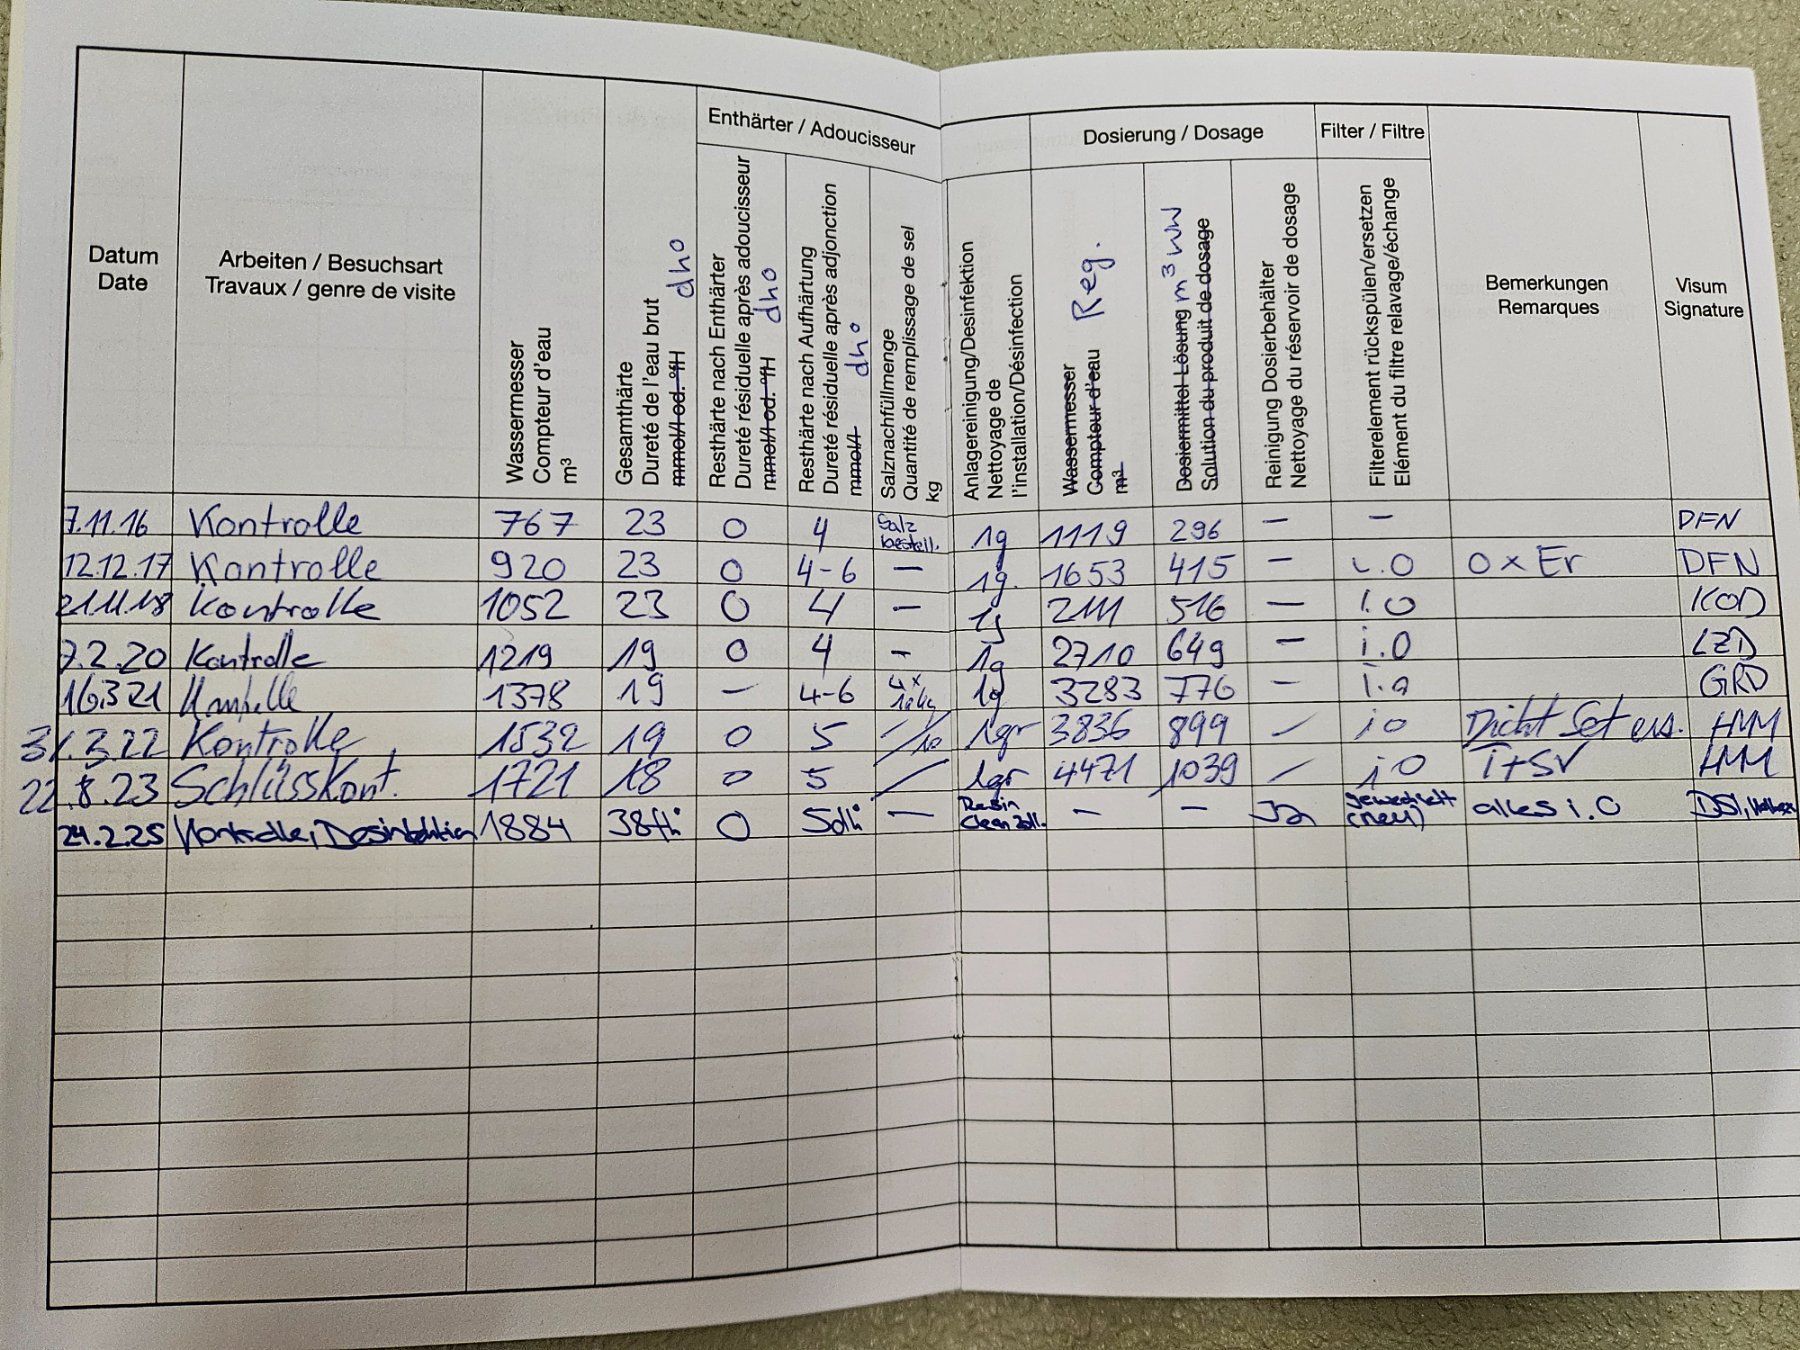 Enthärter / Adoucisseur
Dosierung / Dosage
Filter / Filtre
Datum
Date
Arbeiten / Besuchsart
Travaux / genre de visite
Wassermesser
Compteur d'eau
m³
Gesamthärte
Dureté de l'eau brut
mmol/l od. °fH dh°
Resthärte nach Enthärter
Dureté résiduelle après adoucisseur
mmol/l od. °fH dh°
Resthärte nach Aufhärtung
Dureté résiduelle après adjonction
mmol/l dh°
Salznachfüllmenge
Quantité de remplissage de sel
kg
Anlagereinigung/Desinfektion
Nettoyage de
l'installation/Désinfection
Wassermesser
Compteur d'eau Reg.
m³
Dosiermittel Lösung m³ WW
Solution du produit de dosage
Reinigung Dosierbehälter
Nettoyage du réservoir de dosage
Filterelement rückspülen/ersetzen
Elément du filtre relavage/échange
Bemerkungen
Remarques
Visum
Signature
7.11.16 Kontrolle 767 23 0 4 Salz bestell. 1g 1119 296 – – DFN
12.12.17 Kontrolle 920 23 0 4-6 – 1g. 1653 415 – i.O 0 x Er DFN
21.11.18 Kontrolle 1052 23 0 4 – 1g 2111 516 – i.O KOD
7.2.20 Kontrolle 1219 19 0 4 – 1g 2710 649 – i.O LZD
16.3.21 Kontrolle 1378 19 – 4-6 4x 1g 3283 776 – i.o GRD
31.3.22 Kontrolle 1532 19 0 5 1gr 3836 899 – io Dicht Set ers. HMM
22.8.23 Schlüsskont. 1721 18 0 5 – 1gr 4471 1039 – io T+SV HMM
24.2.25 Kontrolle, Desinfektion 1884 38fh° 0 5dh° – Resin Clean – – Ja gewechselt (neu) alles i.O DSI,